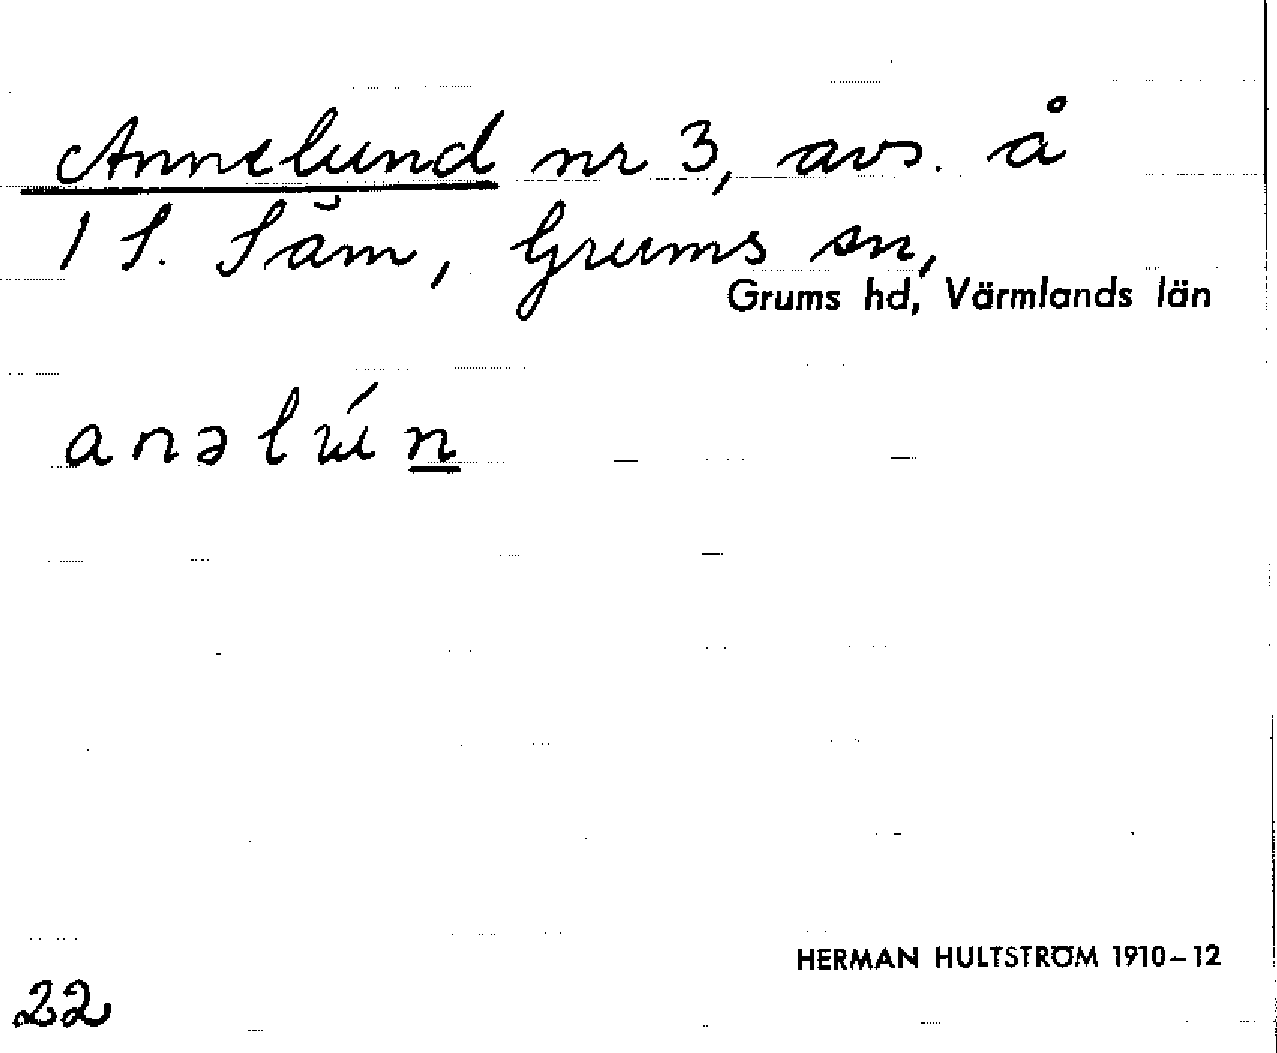 Annelund nr 3, avs. å
1 S. Säm, Grums sn,
Grums hd, Värmlands län
anəlún
HERMAN HULTSTRÖM 1910–12
22